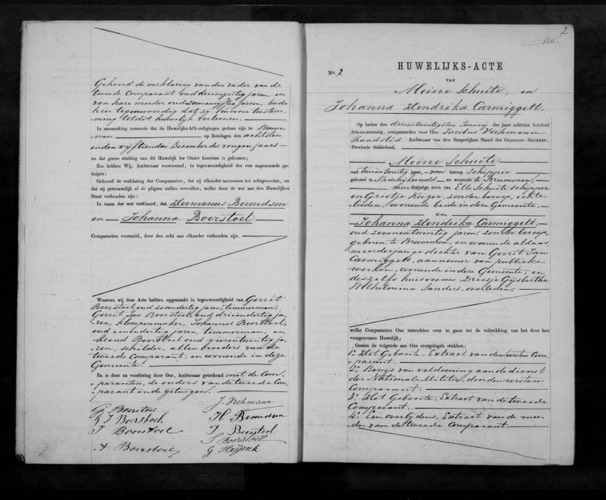 Gehoord de verklaring van den vader van de
tweede Comparant, oud
van hare moeder oud jaren, beide
hier tegenwoordig dat zij hunne toestem-
ming tot dit huwelijk verleenen.
In aanmerking nemende dat de Huwelijks-Afkondigingen gedaan zijn te Brum-
men op Zondagen den achtsten
en den vijftienden December des vorigen jaars
en dat geene stuiting van dit Huwelijk ter Onzer kennisse is gekomen;
Zoo hebben Wij, Ambtenaar voornoemd, in tegenwoordigheid der vier nagenoemde ge-
tuigen:
Gehoord de verklaring der Comparanten, dat zij elkander aannemen tot echtgenooten, en
dat zij getrouwelijk al de pligten zullen vervullen, welke door de wet aan den Huwelijken
Staat verbonden zijn:
In naam der wet verklaard, dat Hermanus Berendsen
en Johanna Boerstoel
Comparanten voormeld, door den echt aan elkander verbonden zijn.
Waarvan wij deze Acte hebben opgemaakt in tegenwoordigheid van Gerrit
Boerstoel, oud jaren, timmerman,
Gerrit Jan Boerstoel, oud ja-
ren, klompenmaker, Johannes Boerstoel,
oud jaren, timmerman, en
Boerstoel oud ja-
ren, schilder, allen broeders van de
tweede Comparant, en wonende in deze
Gemeente.
En is deze na voorlezing door Ons, Ambtenaar geteekend met de Com-
paranten, de ouders van de tweede Com-
parant en de getuigen.
G Boerstoel J. Veehmann
G J Boerstoel H Berendsen
J Boerstoel J. Boerstoel
J Boerstoel
A Boerstoel G Heijink
2
HUWELIJKS-ACTE
No. 2
VAN
Meine Schuite, en
Johanna Hendrika Carmiggelt.
Op heden den drieentwintigsten January des jaars achttien honderd
compareerden voor Ons Jacobus Veehmann
Raadslid Ambtenaar van den Burgerlijken Stand der Gemeente Brummen,
Provincie Gelderland,
Meine Schuite
oud jaren, van beroep Schipper
geboren te en wonende te Brummen,
meerderjarige zoon van Elle Schuite, schipper
en Grietje Keizer, zonder beroep, echte-
lieden, wonende beide in dese Gemeente.
en
Johanna Hendrika Carmiggelt
oud zevenentwintig jaren, zonder beroep,
geboren te Brummen, en wonende aldaar,
meerderjarige dochter van Gerrit Jan
Carmiggelt, aannemer van publieke
werken, wonende in dese Gemeente, en
deszelfs huisvrouw Geesje Gijsbertha
Wilhelmina Sanders, overleden.
welke Comparanten Ons verzochten over te gaan tot de voltrekking van het door hen
voorgenomen Huwelijk;
Gezien de volgende aan Ons overgelegde stukken:
1º Het Geboorte Extract van den eersten Com-
parant.
2º Bewijs van voldoening aan de dienst
der Nationale Militie, door den eersten
Comparant.
3º Het Geboorte Extract van de tweede
Comparant.
4º Een overlijdens Extract van de moe-
der van de tweede Comparant.